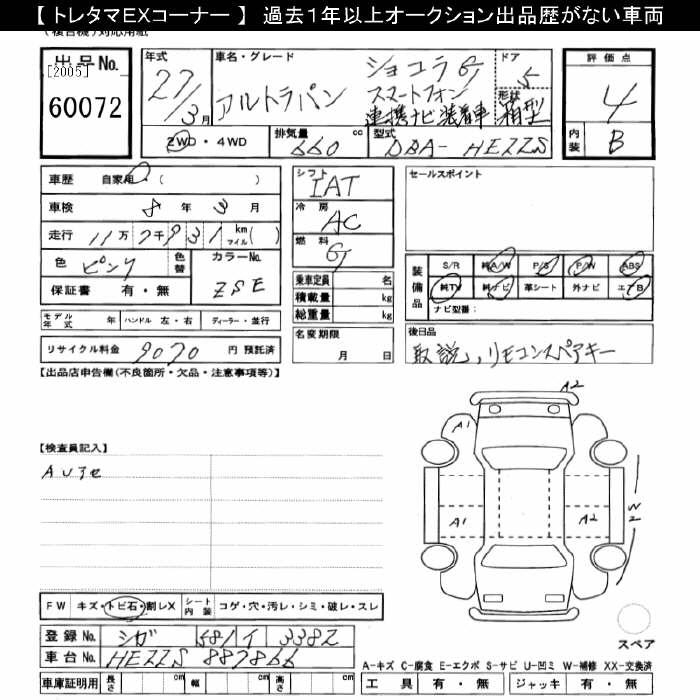 【 トレタマEXコーナー 】 過去１年以上オークション出品歴がない車両
出品No.
[2005]
60072
年式
27/3月
車名・グレード
アルトラパン ショコラG
スマートフォン
連携ナビ装着車
ドア
5
形状
箱型
評価点
4
内装
B
2WD・4WD
排気量
660 cc
型式
DBA- HE22S
車歴 自家用・( )
車検 8年 3月
走行 11万7千931 km マイル( )
色 ピンク 色替
カラーNo. ZSE
保証書 有・無
モデル年式 年 ハンドル 左・右 ディーラー・並行
リサイクル料金 9070 円 預託済
シフト
IAT
冷房
AC
燃料
G
乗車定員 名
積載量 kg
総重量 kg
名変期限
月 日
セールスポイント
装備品
S/R 純A/W P/S P/W ABS
純TV 純ナビ 革シート 外ナビ エアB
ナビ型番：
後日品
取説、リモコンスペアキー
【出品店申告欄(不良箇所・欠品・注意事項等)】
【検査員記入】
A2
A1
A1
A2
W2
FW キズ・トビ石・割レX シート内装 コゲ・穴・汚レ・シミ・破レ・スレ
登録No. シガ 581 イ 3382
車台No. HE22S 887866
車庫証明用 長さ cm 幅 cm 高さ cm
スペア
A-キズ C-腐食 E-エクボ S-サビ U-凹ミ W-補修 XX-交換済
工具 有・無 ジャッキ 有・無